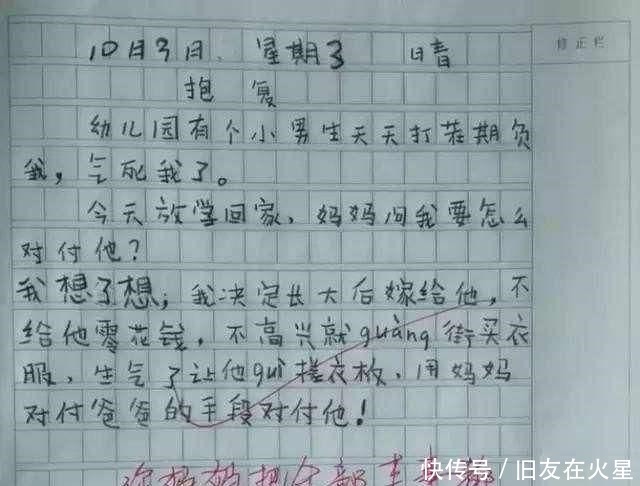 10月3日 星期3 晴
修正栏
抱复
幼儿园有个小男生天天打茬期负
我，气死我了。
今天放学回家，妈妈问我要怎么
对付他？
我想了想，我决定长大后嫁给他，不
给他零花钱，不高兴就guàng街买衣
服，生气了让他guì搓衣板，用妈妈
对付爸爸的手段对付他！
快传号／旧友在火星